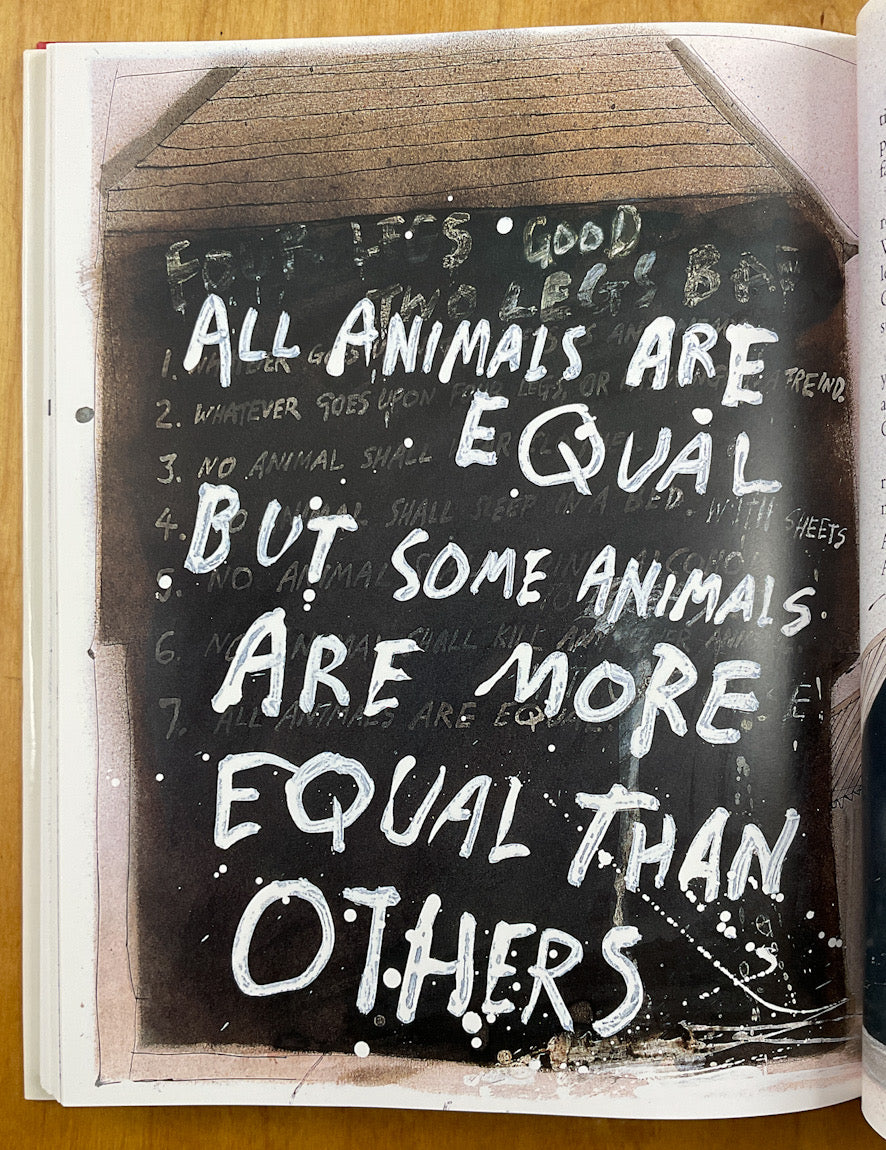 FOUR LEGS GOOD
TWO LEGS BAD
ALL ANIMALS ARE
1. WHATEVER GOES A FREIND.
2. WHATEVER GOES UPON FOUR LEGS, OR
EQUAL
3. NO ANIMAL SHALL
BUT
4. NO ANIMAL SHALL SLEEP IN A BED. WITH SHEETS
SOME ANIMALS
5. NO ANIMAL
ARE MORE
6. NO ANIMAL SHALL KILL ANY OTHER
7. ALL ANIMALS ARE EQUAL.
EQUAL THAN
OTHERS